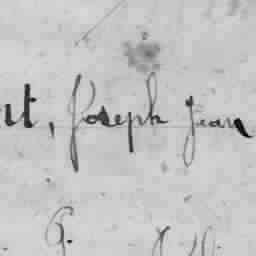 ut, Joseph Jean
6.